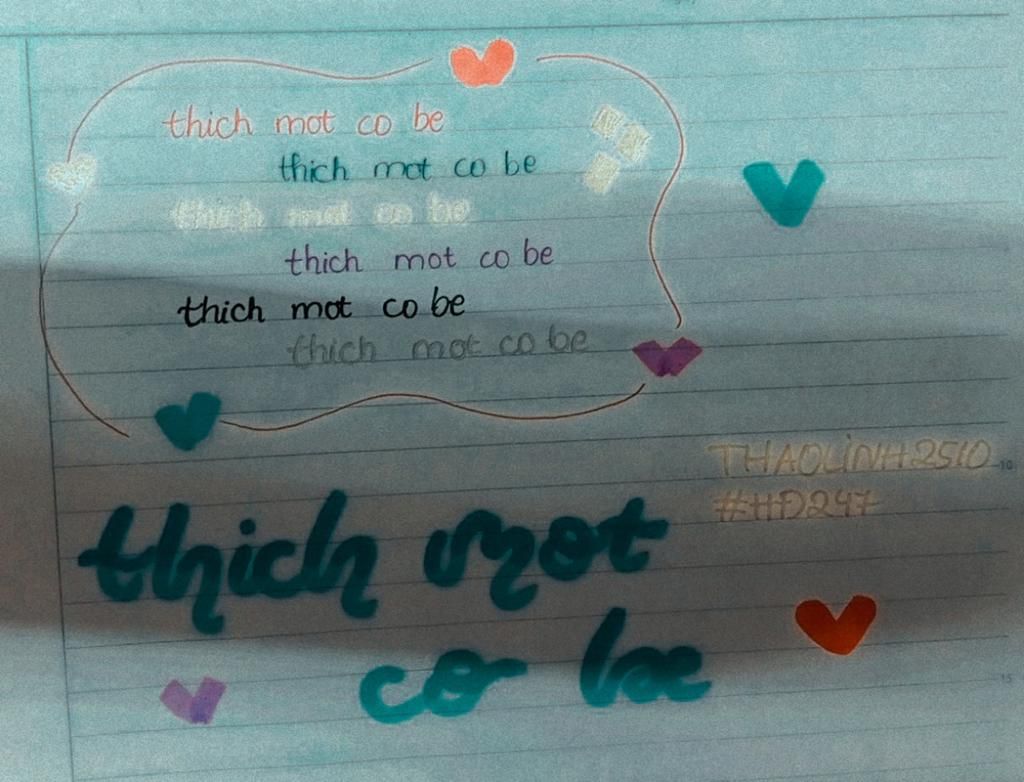 thich mot co be
thich mot co be
thich mot co be
thich mot co be
thich mot co be
thich mot co be
THAOLINH2510
#HĐ247
thich mot
co be
10
15